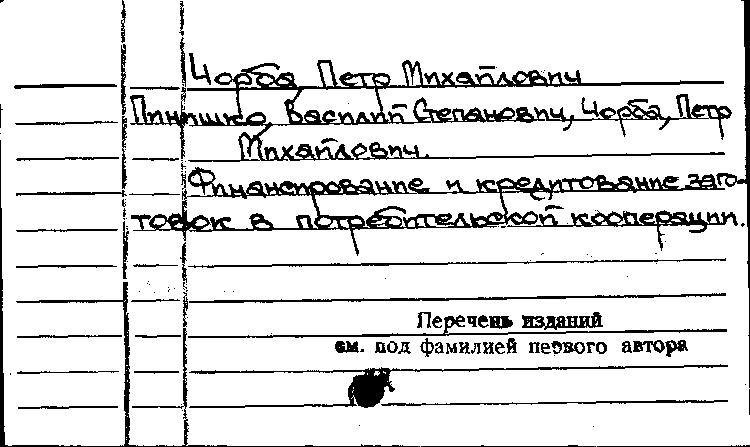 Чорба, Петр Михайлович
Пинишко, Василий Степанович, Чорба, Петр
Михайлович.
Финансирование и кредитование заго-
товок в потребительской кооперации.
Перечень изданий
см. под фамилией первого автора